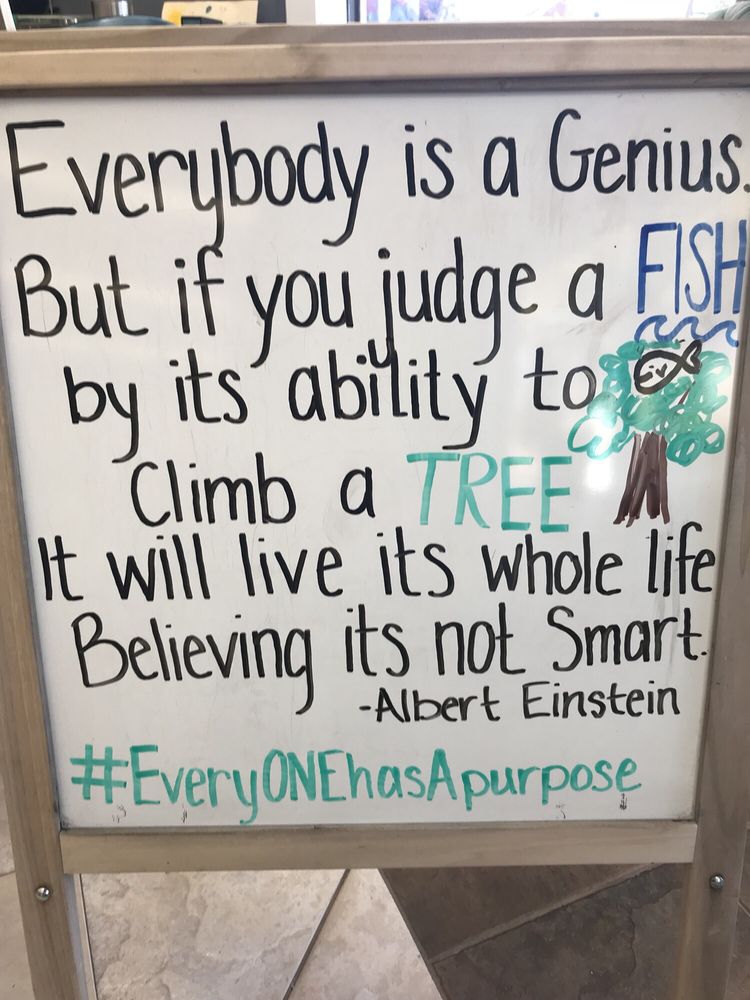 Everybody is a Genius.
But if you judge a FISH
by its ability to
Climb a TREE
It will live its whole life
Believing its not Smart.
-Albert Einstein
#EveryONEhasApurpose